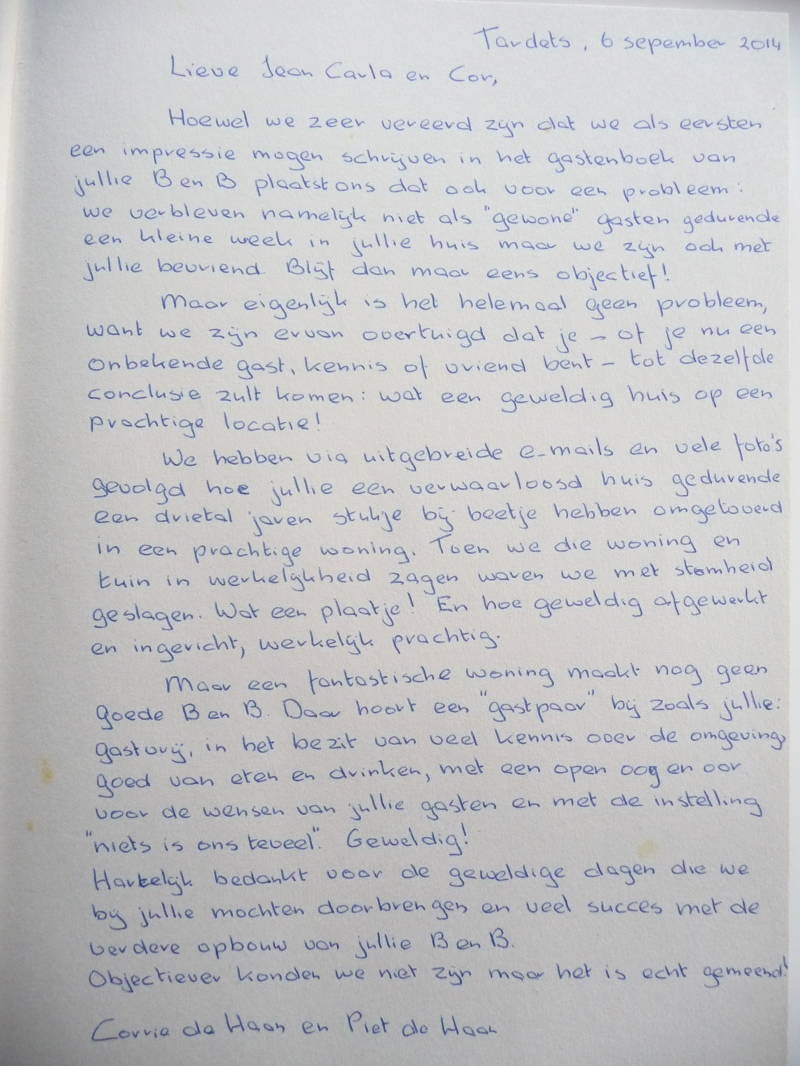 Tardets, 6 sepember 2014
Lieve Jean Carla en Cor,
Hoewel we zeer vereerd zijn dat we als eersten
een impressie mogen schrijven in het gastenboek van
jullie B en B plaatst ons dat ook voor een probleem:
we verbleven namelijk niet als "gewone" gasten gedurende
een kleine week in jullie huis maar we zijn ook met
jullie bevriend. Blijf dan maar eens objectief!
Maar eigenlijk is het helemaal geen probleem,
want we zijn ervan overtuigd dat je - of je nu een
onbekende gast, kennis of vriend bent - tot dezelfde
conclusie zult komen: wat een geweldig huis op een
prachtige locatie!
We hebben via uitgebreide e-mails en vele foto's
gevolgd hoe jullie een verwaarloosd huis gedurende
een drietal jaren stukje bij beetje hebben omgetoverd
in een prachtige woning. Toen we die woning en
tuin in werkelijkheid zagen waren we met stomheid
geslagen. Wat een plaatje! En hoe geweldig afgewerkt
en ingericht, werkelijk prachtig.
Maar een fantastische woning maakt nog geen
goede B en B. Daar hoort een "gastpaar" bij zoals jullie:
gastvrij, in het bezit van veel kennis over de omgeving,
goed van eten en drinken, met een open oog en oor
voor de wensen van jullie gasten en met de instelling
"niets is ons teveel". Geweldig!
Hartelijk bedankt voor de geweldige dagen die we
bij jullie mochten doorbrengen en veel succes met de
verdere opbouw van jullie B en B.
Objectiever konden we niet zijn maar het is echt gemeend!
Corrie de Haan en Piet de Haan